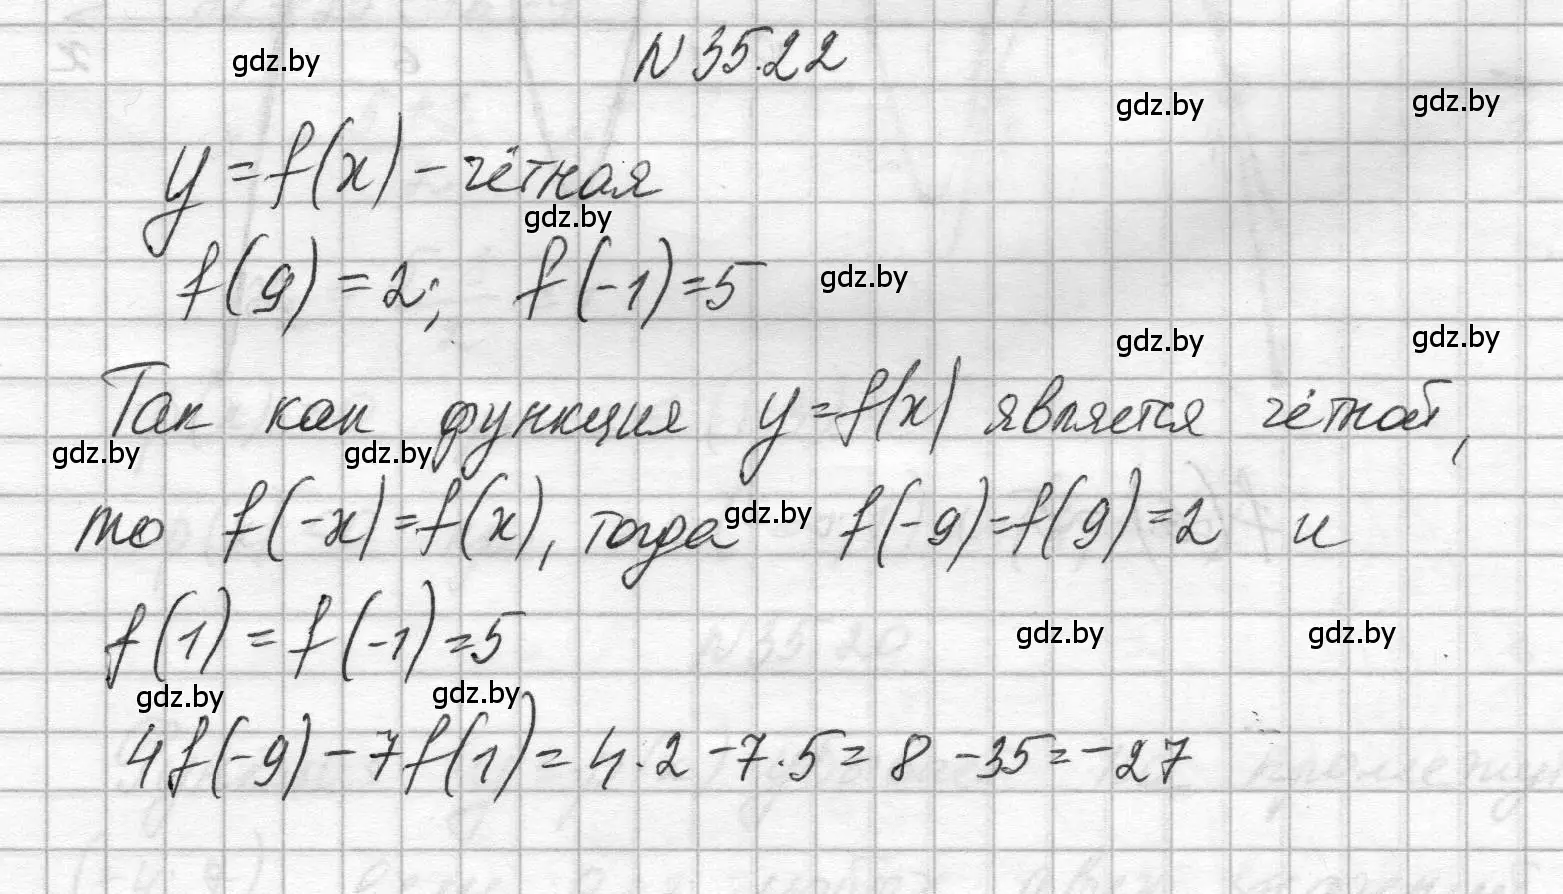 gdz.by
N 35.22
gdz.by
gdz.by
y = f(x) - чётная
gdz.by
f(9) = 2; f(-1) = 5
gdz.by
gdz.by
gdz.by
Так как функция y = f(x) является чётной,
gdz.by
gdz.by
то f(-x) = f(x), тогда f(-9) = f(9) = 2 и
gdz.by
f(1) = f(-1) = 5
gdz.by
gdz.by
gdz.by
gdz.by
4f(-9) - 7f(1) = 4·2 - 7·5 = 8 - 35 = -27
N 35 20